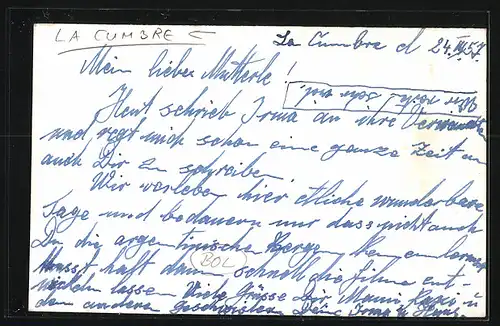 LA CUMBRE
La Cumbre d 24.III.57
Mein lieber Mutterle!
Heut schrieb Irma an ihre Verwandten
und regt mich schon eine ganze Zeit an
auch Dir zu schreiben.
Wir verleben hier etliche wunderbare
Tage und bedauern nur dass nicht auch
Du die argentinische Berge kennenlernst
BOL
Musst halt dann schnell die Filme ent-
wickeln lassen. Viele Grüsse Dir, Mami, Papi u
den andern Geschwister Dein Irma u Hans